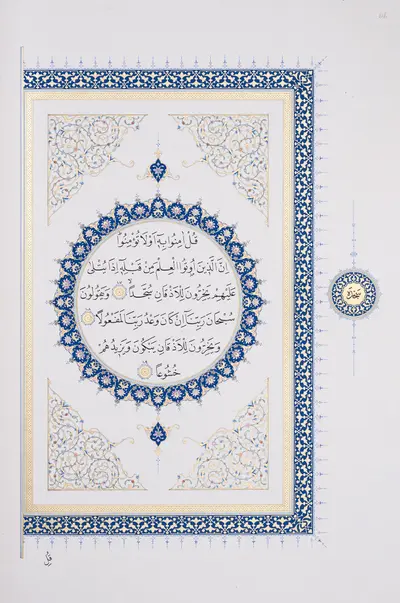 قُلْ اٰمِنُوا بِهٖ اَوْ لَا تُؤْمِنُوا
اِنَّ الَّذٖينَ اُوتُوا الْعِلْمَ مِنْ قَبْلِهٖ اِذَا يُتْلٰى
عَلَيْهِمْ يَخِرُّونَ لِلْاَذْقَانِ سُجَّدًا وَيَقُولُونَ
سُبْحَانَ رَبِّنَا اِنْ كَانَ وَعْدُ رَبِّنَا لَمَفْعُولًا
وَيَخِرُّونَ لِلْاَذْقَانِ يَبْكُونَ وَيَزٖيدُهُمْ
خُشُوعًا
سجدة
قل